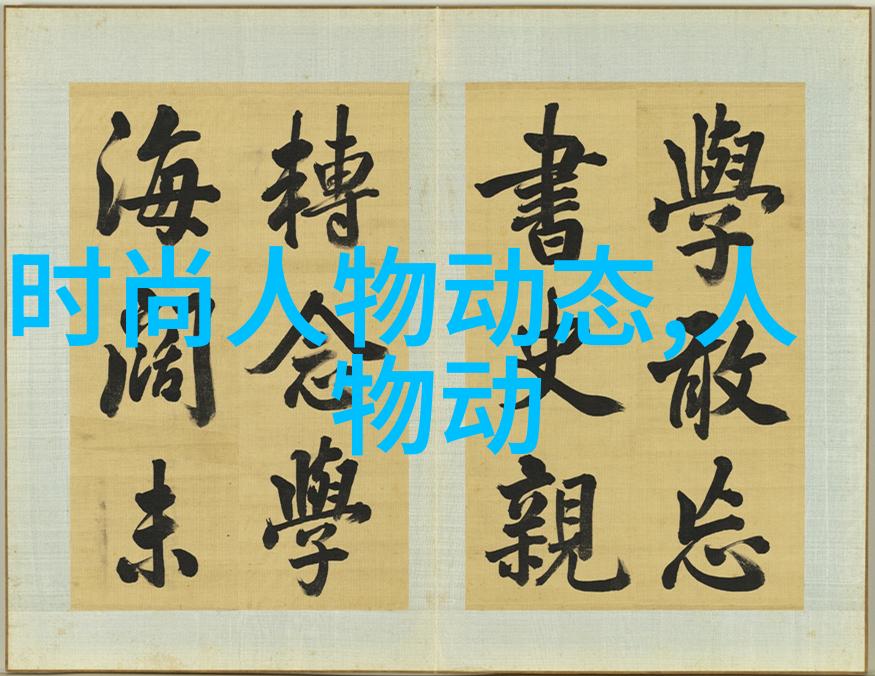 时尚人物动态,人
物动
學敢忘
書史親
轉念學
海闊未